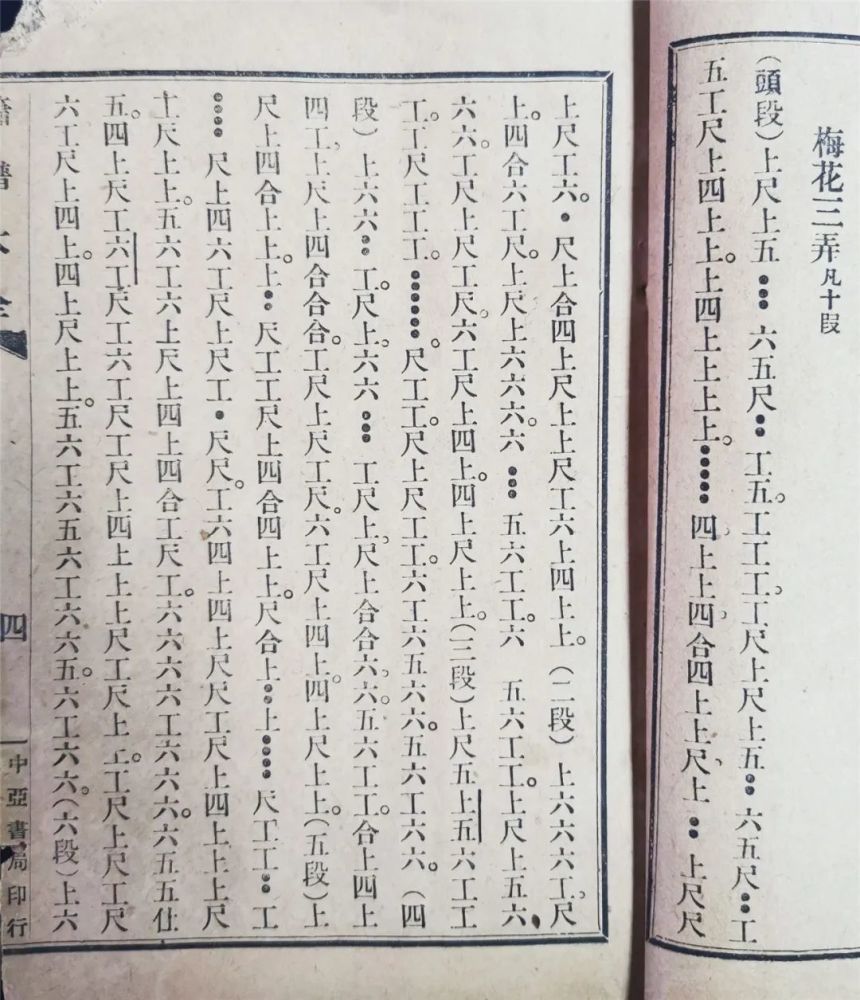 梅花三弄凡十段
(頭段)上尺上五•••六五尺••工五。工工工、工尺上尺上五••六五尺••工
五工尺上四上上。上四上上上上。••••••四上上四、合四上上尺、上••上尺尺
上尺工六。•尺上合四上尺上上尺工六上四上上。(二段)上六六六工、尺
上。四合六工尺。上尺上六六六。六•••五六工工。六 五六工工。上尺上五六
六六。工尺上尺工尺。六工尺上四上。四上尺上上。(三段)上尺五上五六工工
工。工尺工工工。••••••尺工工。尺上尺工工。六工六五六六。五六工六六。(四
段)上六六••工。尺上。六六•••工尺上、尺上合合六、六。五六工工。合上四上
四工、上尺上四合合合。工尺上尺工尺。六工尺上四上。四上尺上上。(五段)上
尺上四合上上。上••尺工工尺上四合四上上。尺合上••上••••尺工工••工
••••尺上四六工尺上尺工•尺尺。工六四上四上尺尺工尺上四上上上尺
工尺上上。五六工六上尺上四上四合工尺工。六六六六工六六六。六五五仕
五。四上尺工六工尺工六工尺工尺上四上上上尺工尺上上。工尺上尺工尺
六工尺上四上。四上尺上上。五六工六五六工六六五。六工六六。(六段)上六
四
中亞書局印行